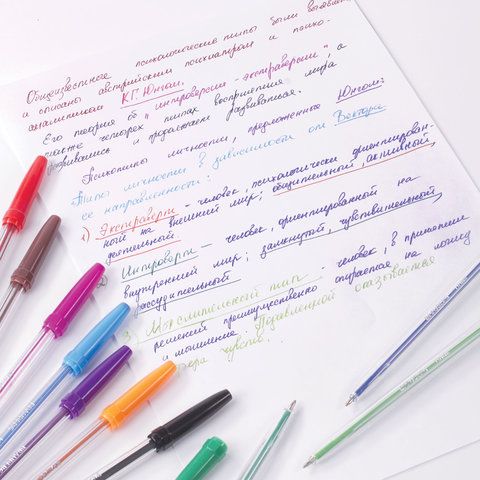 Общеизвестные психологические типы были выявлены
и описаны австрийским психиатром и психо-
аналитиком К.Г. Юнгом.
Его теория об "интроверсии - экстраверсии", а
также четырех типах восприятия мира
развивались и продолжает развиваться.
Психотипы личности, предложенные Юнгом:
Типы личности в зависимости от Вектора
ее направленности:
1) Экстраверты - человек, психологически ориентирован-
ный на внешний мир; общительный, активный,
деятельный.
Интроверты - человек, ориентированный на
внутренний мир; замкнутой, чувствительный,
рассудительный
3) Мыслительный тип - человек, в принятии
решений преимущественно опирается на логику
и мышление. Подавленной оказывается
чувств.